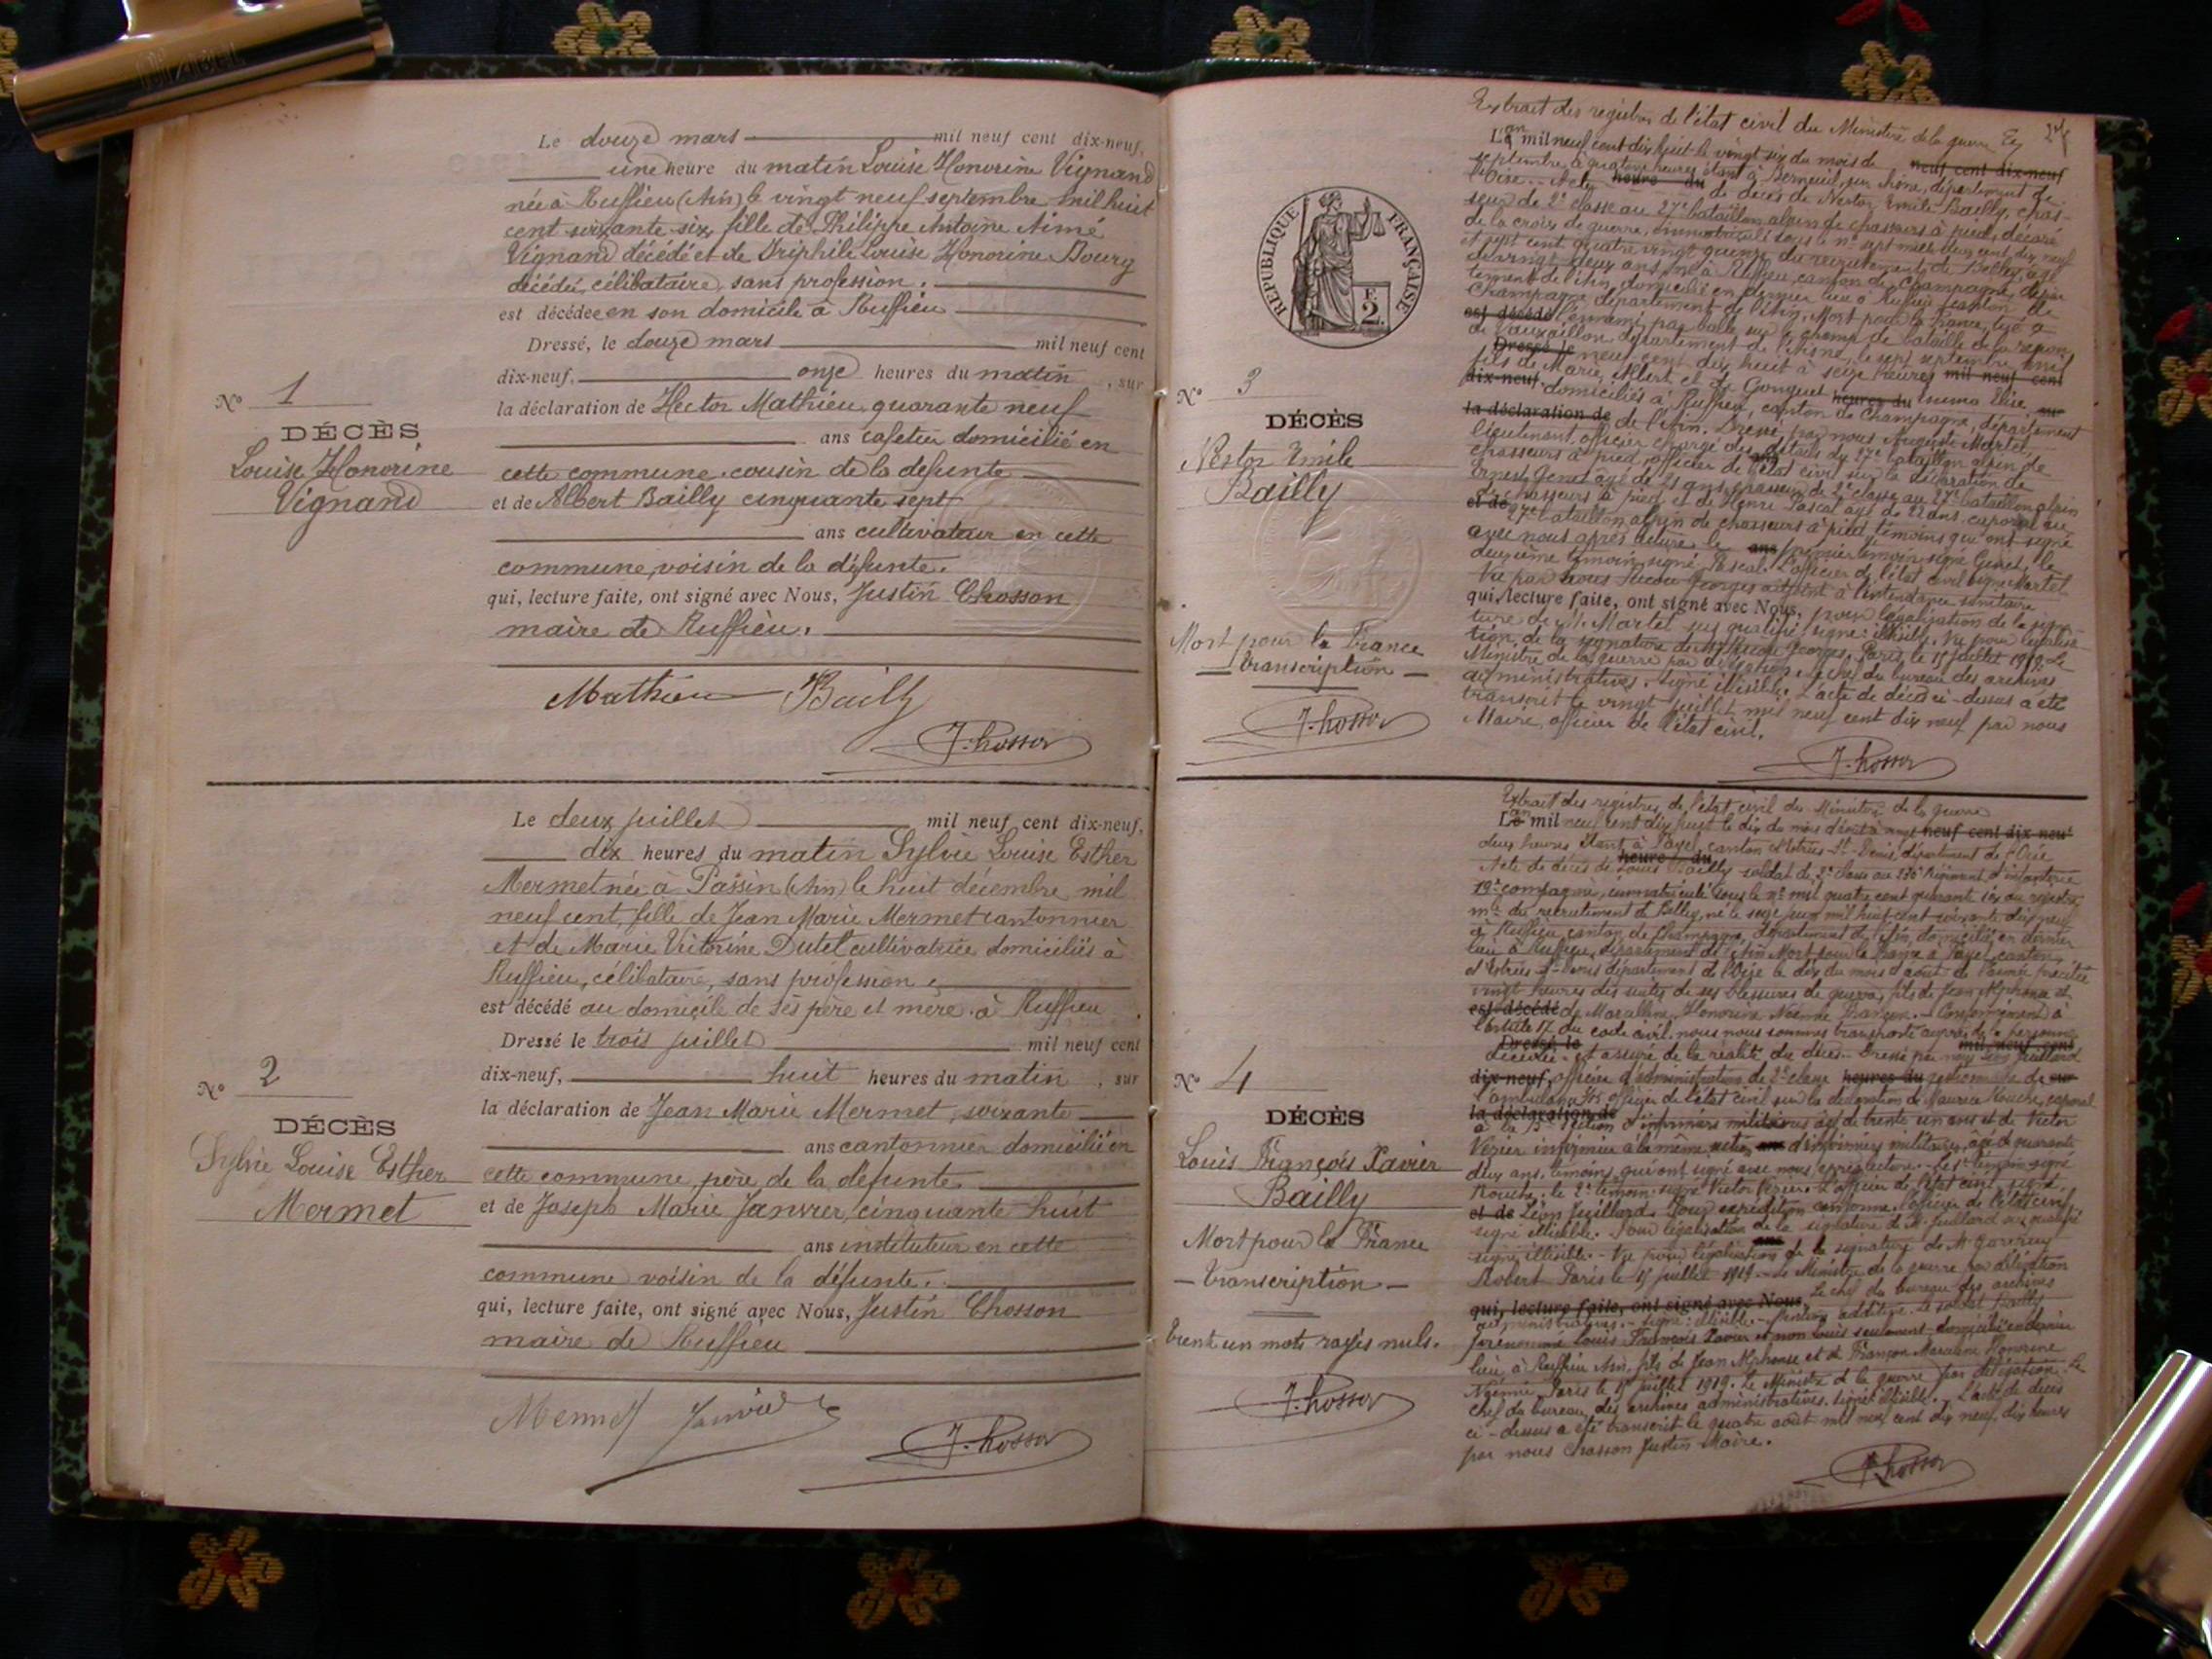 Le douze mars mil neuf cent dix-neuf,
une heure du matin Louise Honorine Vignand
née à Ruffieu (Ain) le vingt neuf septembre mil huit
cent soixante-six, fille de Philippe Antoine Aimé
Vignand décédé et de Triphile Louise Honorine Bourg
décédée, célibataire, sans profession.
est décédée en son domicile à Ruffieu
Dressé, le douze mars mil neuf cent
dix-neuf, onze heures du matin, sur
la déclaration de Hector Mathieu, quarante neuf
ans cafetier domicilié en
cette commune, cousin de la défunte
et de Albert Bailly cinquante sept
ans cultivateur en cette
commune, voisin de la défunte.
qui, lecture faite, ont signé avec Nous, Justin Chosson
maire de Ruffieu.
Mathieu Bailly
J. Chosson
N° 1
DÉCÈS
Louise Honorine
Vignand
Le deux juillet mil neuf cent dix-neuf,
dix heures du matin Sylvie Louise Esther
Mermet née à Passin (Ain) le huit décembre mil
neuf cent, fille de Jean Marie Mermet cantonnier
et de Marie Victorine Dutel cultivatrice domiciliés à
Ruffieu, célibataire, sans profession
est décédé au domicile de ses père et mère à Ruffieu
Dressé le trois juillet mil neuf cent
dix-neuf, huit heures du matin, sur
la déclaration de Jean Marie Mermet, soixante
ans cantonnier domicilié en
cette commune, père de la défunte
et de Joseph Marie Janvier, cinquante huit
ans instituteur en cette
commune voisin de la défunte.
qui, lecture faite, ont signé avec Nous, Justin Chosson
maire de Ruffieu
Mermet Janvier
J. Chosson
N° 2
DÉCÈS
Sylvie Louise Esther
Mermet
RÉPUBLIQUE FRANÇAISE
F. 2.
N° 3
DÉCÈS
Nestor Emile
Bailly
Mort pour la France
transcription
J. Chosson
Extrait des registres de l'état civil du Ministère de la guerre
L'an mil neuf cent dix huit le vingt six du mois de neuf cent dix-neuf
septembre à quatorze heures étant à Berneuil sur Aisne, département de
l'Oise. Acte heure du de décès de Nestor Emile Bailly, chas-
seur de 2e classe au 27e bataillon alpin de chasseurs à pied, décoré
de la croix de guerre, immatriculé sous le n° sept mille deux cent dix neuf
et sept cent quatre vingt quinze du recrutement de Belley, âgé
de vingt deux ans, né à Ruffieu, canton de Champagne, dépar-
tement de l'Ain, domicilié en dernier lieu à Ruffieu, canton de
Champagne, département de l'Ain, Mort pour la France, tué à
est décédé l'ennemi par balle sur le champ de bataille de la région
de Vauxaillon, département de l'Aisne, le sept septembre mil
Dressé le neuf cent dix huit à seize heures mil neuf cent
fils de Marie Albert et de
dix-neuf, domiciliés à Ruffieu, canton de Champagne, département
la déclaration de de l'Ain. Dressé par nous Auguste Martel,
lieutenant, officier chargé des détails du 27e bataillon alpin de
chasseurs à pied, officier de l'état civil, sur la déclaration de
Ernest Genet âgé de 21 ans, chasseur de 2e classe au 27e bataillon alpin
et de chasseurs à pied, et de Henri Pascal âgé de 22 ans, caporal au
27e bataillon alpin de chasseurs à pied témoins qui ont signé
avec nous après lecture. le ans premier témoin signé Genet, le
deuxième témoin, signé Pascal. L'officier de l'état civil signé Martel.
Vu par nous Georges adjoint à l'intendance sanitaire
qui, lecture faite, ont signé avec Nous, pour légalisation de la signa-
ture de M. Martel sus qualifié signé: illisible. Vu pour légalisa-
tion de la signature de M. Georges. Paris, le 15 juillet 1919. Le
Ministre de la guerre par délégation le chef du bureau des archives
administratives. Signé illisible. L'acte de décès ci-dessus a été
transcrit le vingt juillet mil neuf cent dix neuf par nous
Maire, officier de l'état civil.
J. Chosson
N° 4
DÉCÈS
Louis François Xavier
Bailly
Mort pour la France
transcription
Trente un mots rayés nuls.
J. Chosson
Extrait des registres de l'état civil du Ministère de la guerre
L'an mil neuf cent dix huit le dix du mois d'août à vingt neuf cent dix-neuf
deux heures étant à Fayel, canton d'Estrées St-Denis département de l'Oise
Acte de décès de Louis Bailly soldat de 2e classe au 230e Régiment d'infanterie
19e compagnie, immatriculé sous le n° mil quatre cent quarante six au registre
mle du recrutement de Belley, né le seize juin mil huit cent soixante dix neuf
à Ruffieu, canton de Champagne, département de l'Ain, domicilié en dernier
lieu à Ruffieu, département de l'Ain Mort pour la France à Fayel, canton
d'Estrées St-Denis département de l'Oise le dix du mois d'août de l'année précitée
vingt heures des suites de ses blessures de guerre, fils de Jean Alphonse et
est décédé de Marceline Honorine Noémie Françon. Conformément à
l'article 77 du code civil, nous nous sommes transporté auprès de la personne
Dressé, le décédée et assuré de la réalité du décès. Dressé par nous Léon Juillard
mil neuf cent
dix-neuf, officier d'administration de 2e classe heures du gestionnaire de sur
l'ambulance officier de l'état civil, sur la déclaration de Maurice Rouche, caporal
la déclaration de à la section d'infirmiers militaires âgé de trente un ans et de Victor
Vézier infirmier à la même section ans d'infirmiers militaires, âgé de quarante
deux ans, témoins qui ont signé avec nous après lecture. Le 1er témoin signé
Rouche, le 2e témoin signé Victor Vézier. L'officier de l'état civil signé
et de Léon Juillard. Pour expédition conforme. L'officier de l'état civil
signé illisible. Pour légalisation de la signature de M. Juillard sus qualifié
signé illisible. Vu pour légalisation de la signature de M.
Robert. Paris le 15 juillet 1919. Le Ministre de la guerre par délégation
Le chef du bureau des archives
qui, lecture faite, ont signé avec Nous,
administratives. signé: illisible. Mention additive. Le soldat Bailly
prénommé Louis François Xavier et non Louis seulement domicilié en dernier
lieu à Ruffieu Ain, fils de Jean Alphonse et de Françon Marceline Honorine
Noémie. Paris le 15 juillet 1919. Le Ministre de la guerre par délégation. Le
chef du bureau des archives administratives. signé: illisible. L'acte de décès
ci-dessus a été transcrit le quatre août mil neuf cent dix neuf, dix heures
par nous Chosson Justin Maire.
J. Chosson